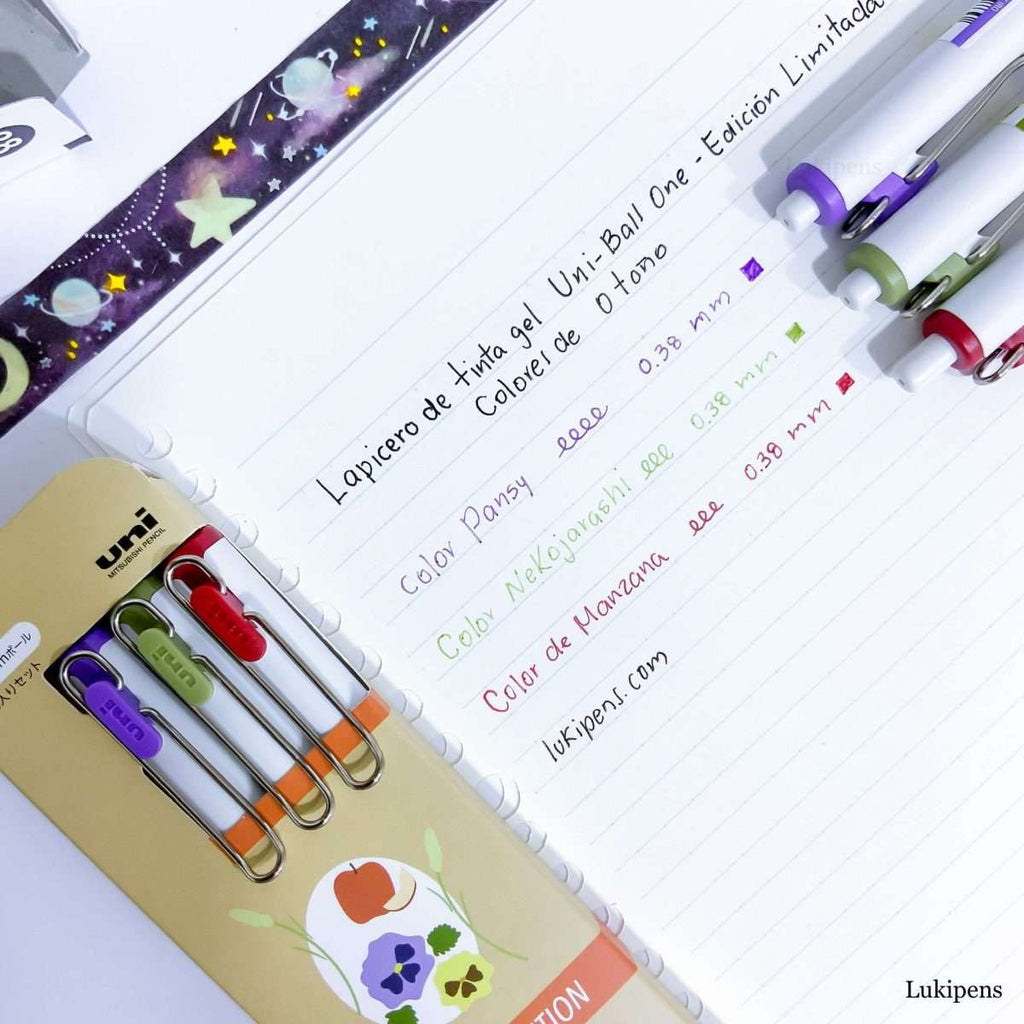 Lapicero de tinta gel Uni-Ball One - Edición Limitada
Colores de Otoño
Color Pansy 0.38 mm
Color Nekojarashi 0.38 mm
Color de Manzana 0.38 mm
lukipens.com
uni
MITSUBISHI PENCIL
ボール
入りセット
uni
uni
uni
Lukipens
Lukipens